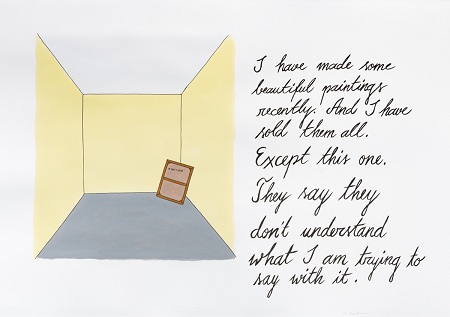 I have made some
beautiful paintings
recently. And I have
sold them all.
Except this one.
They say they
don't understand
what I am trying to
say with it.